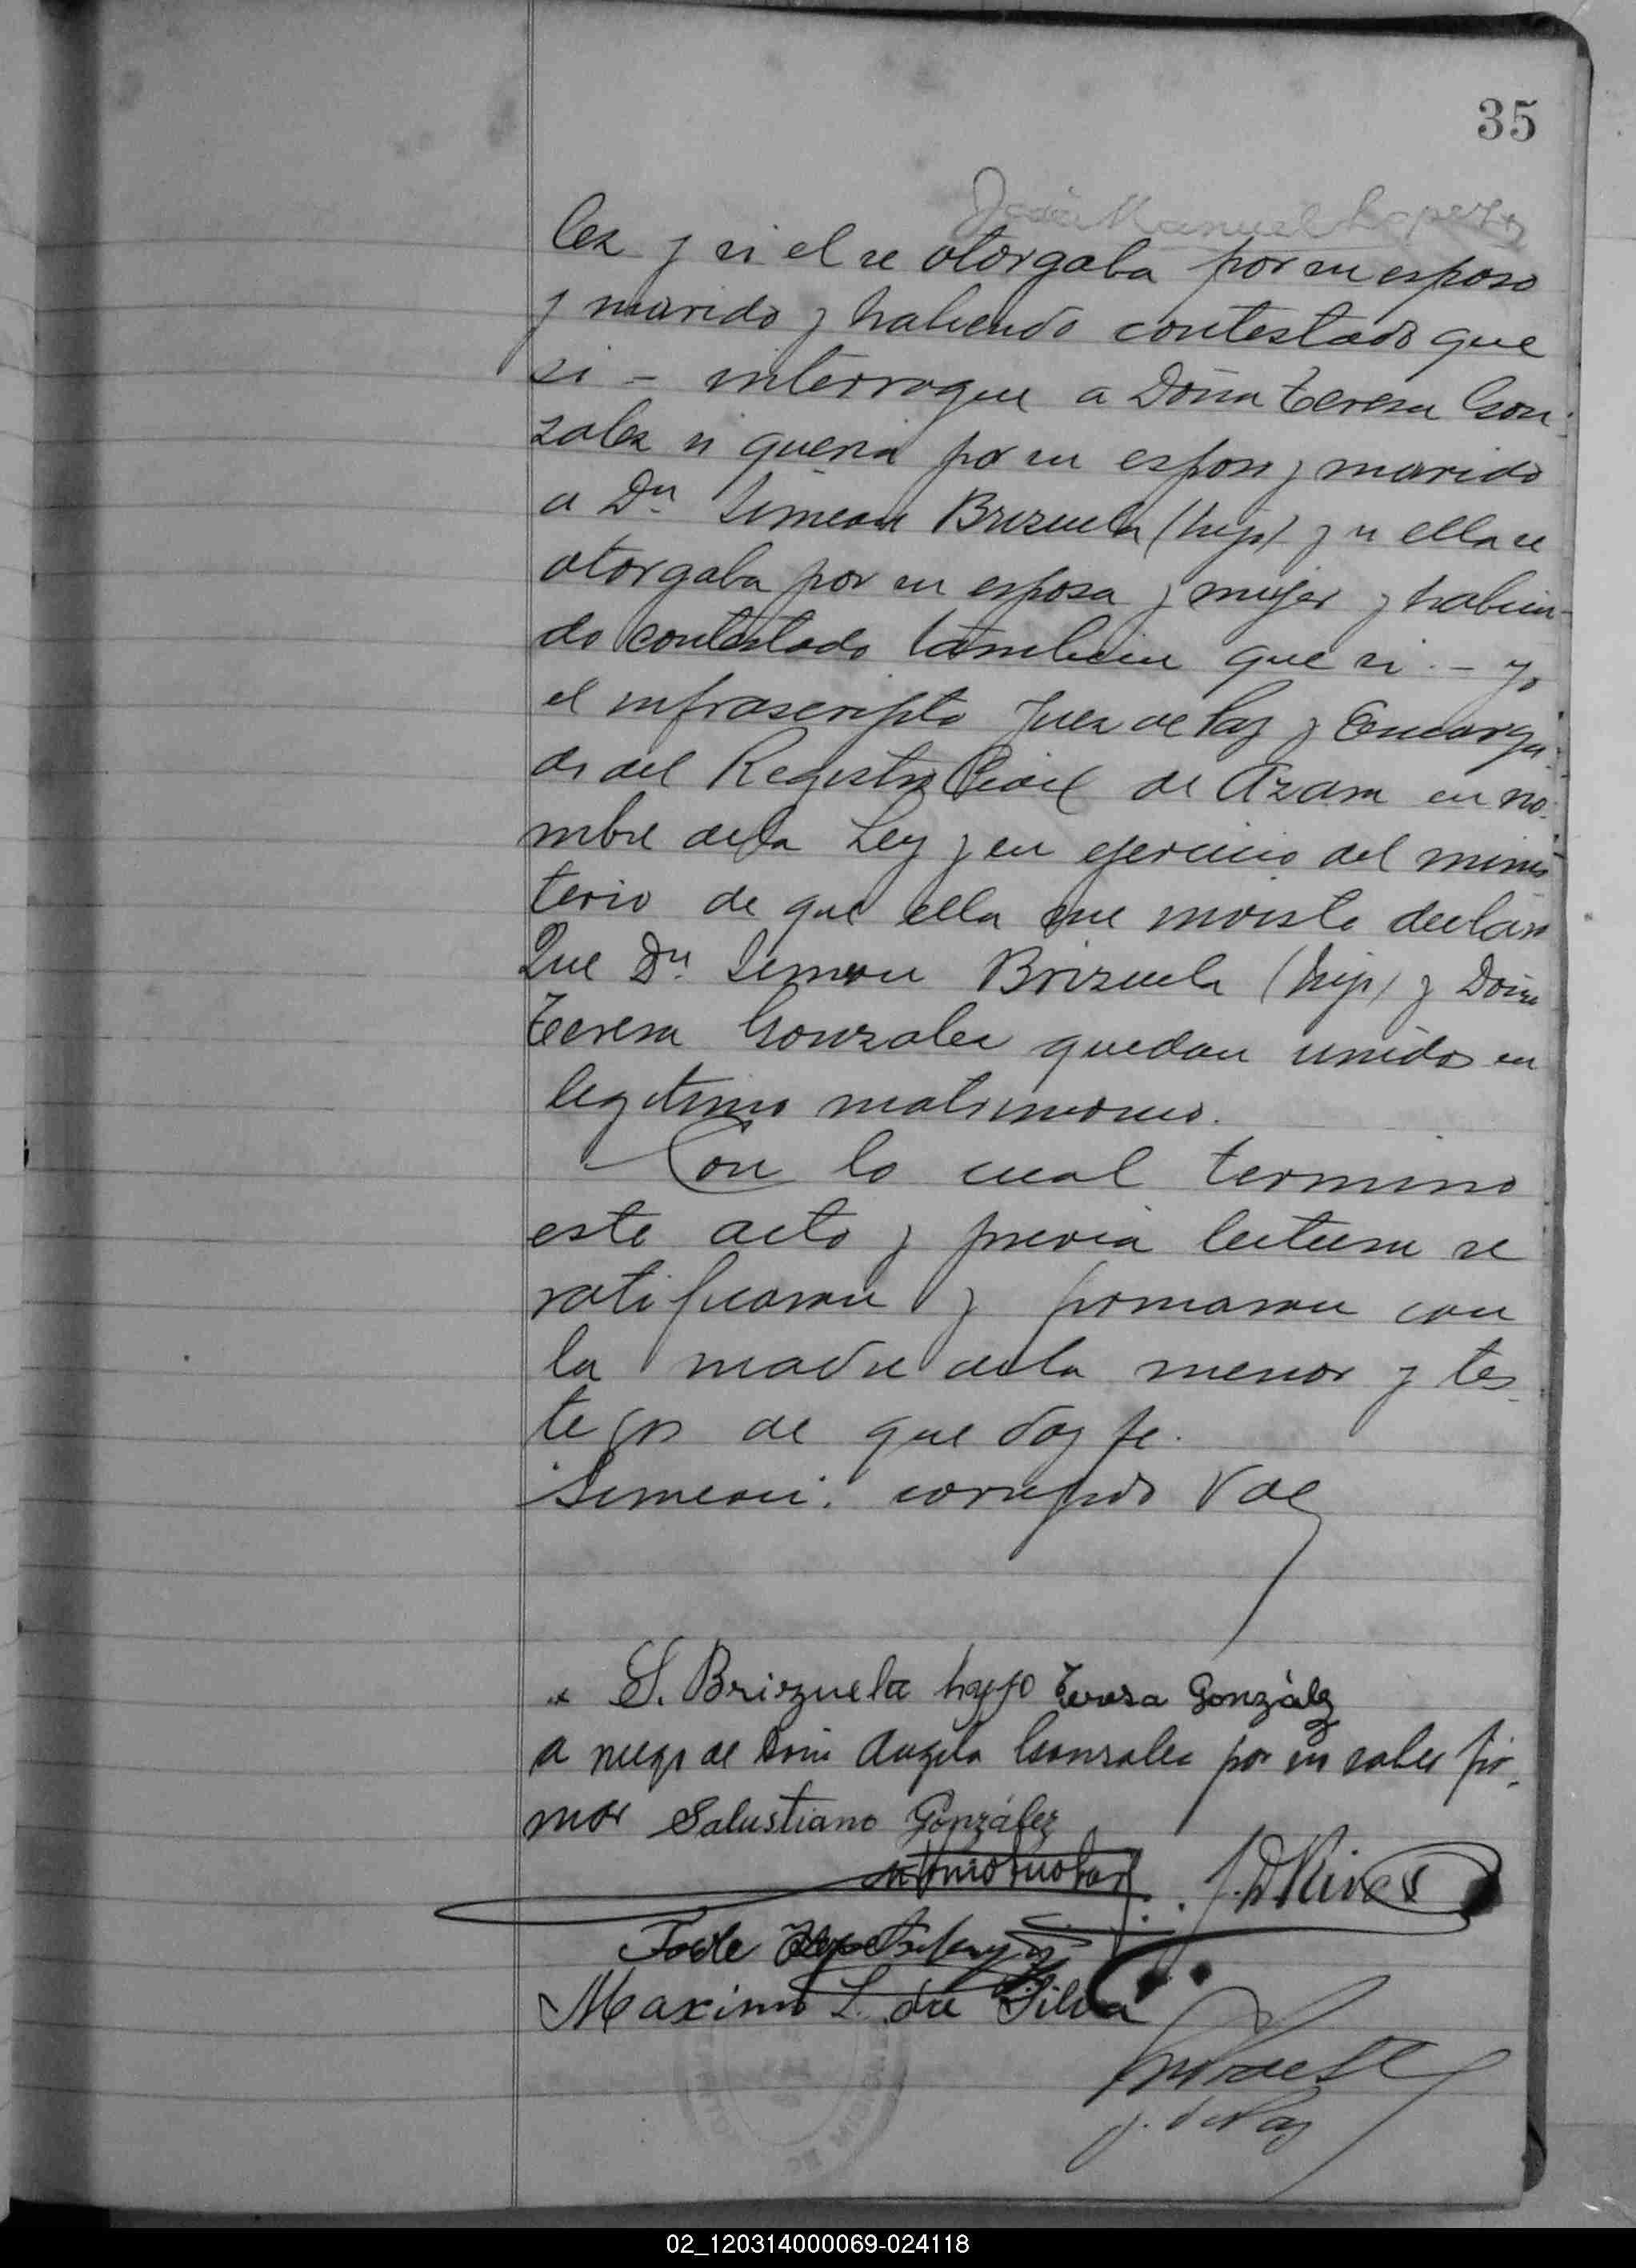 35
Manuel Lopez
lez y si el se otorgaba por su esposo
y marido y habiendo contestado que
si - interrogue a Doña Teresa Gon-
zalez si queria por su esposo y marido
a Dn Simeon Brizuela (hijo) y si ella se
otorgaba por su esposa y mujer y habien-
do contestado tambien que si. - yo
el infrascripto Juez de Paz y Encarga-
do del Registro Civil de Azara en no-
mbre de la Ley y en ejercicio del minis
terio de que ella me inviste declaro
Que Dn Simeon Brizuela (hijo) y Doña
Teresa Gonzalez quedan unidos en
legitimo matrimonio.
Con lo cual termino
este acto y previa lectura se
ratificaron y firmaron con
la madre de la menor y tes-
tegos de que doy fe.
Simeon: corregido Vale
S. Brizuela hijo Teresa González
a ruego de Doña Angela Gonzalez por no saber fir-
mar Salustiano González
J. D Rives
Maximo L. da Silva
J. de Paz
02_120314000069-024118